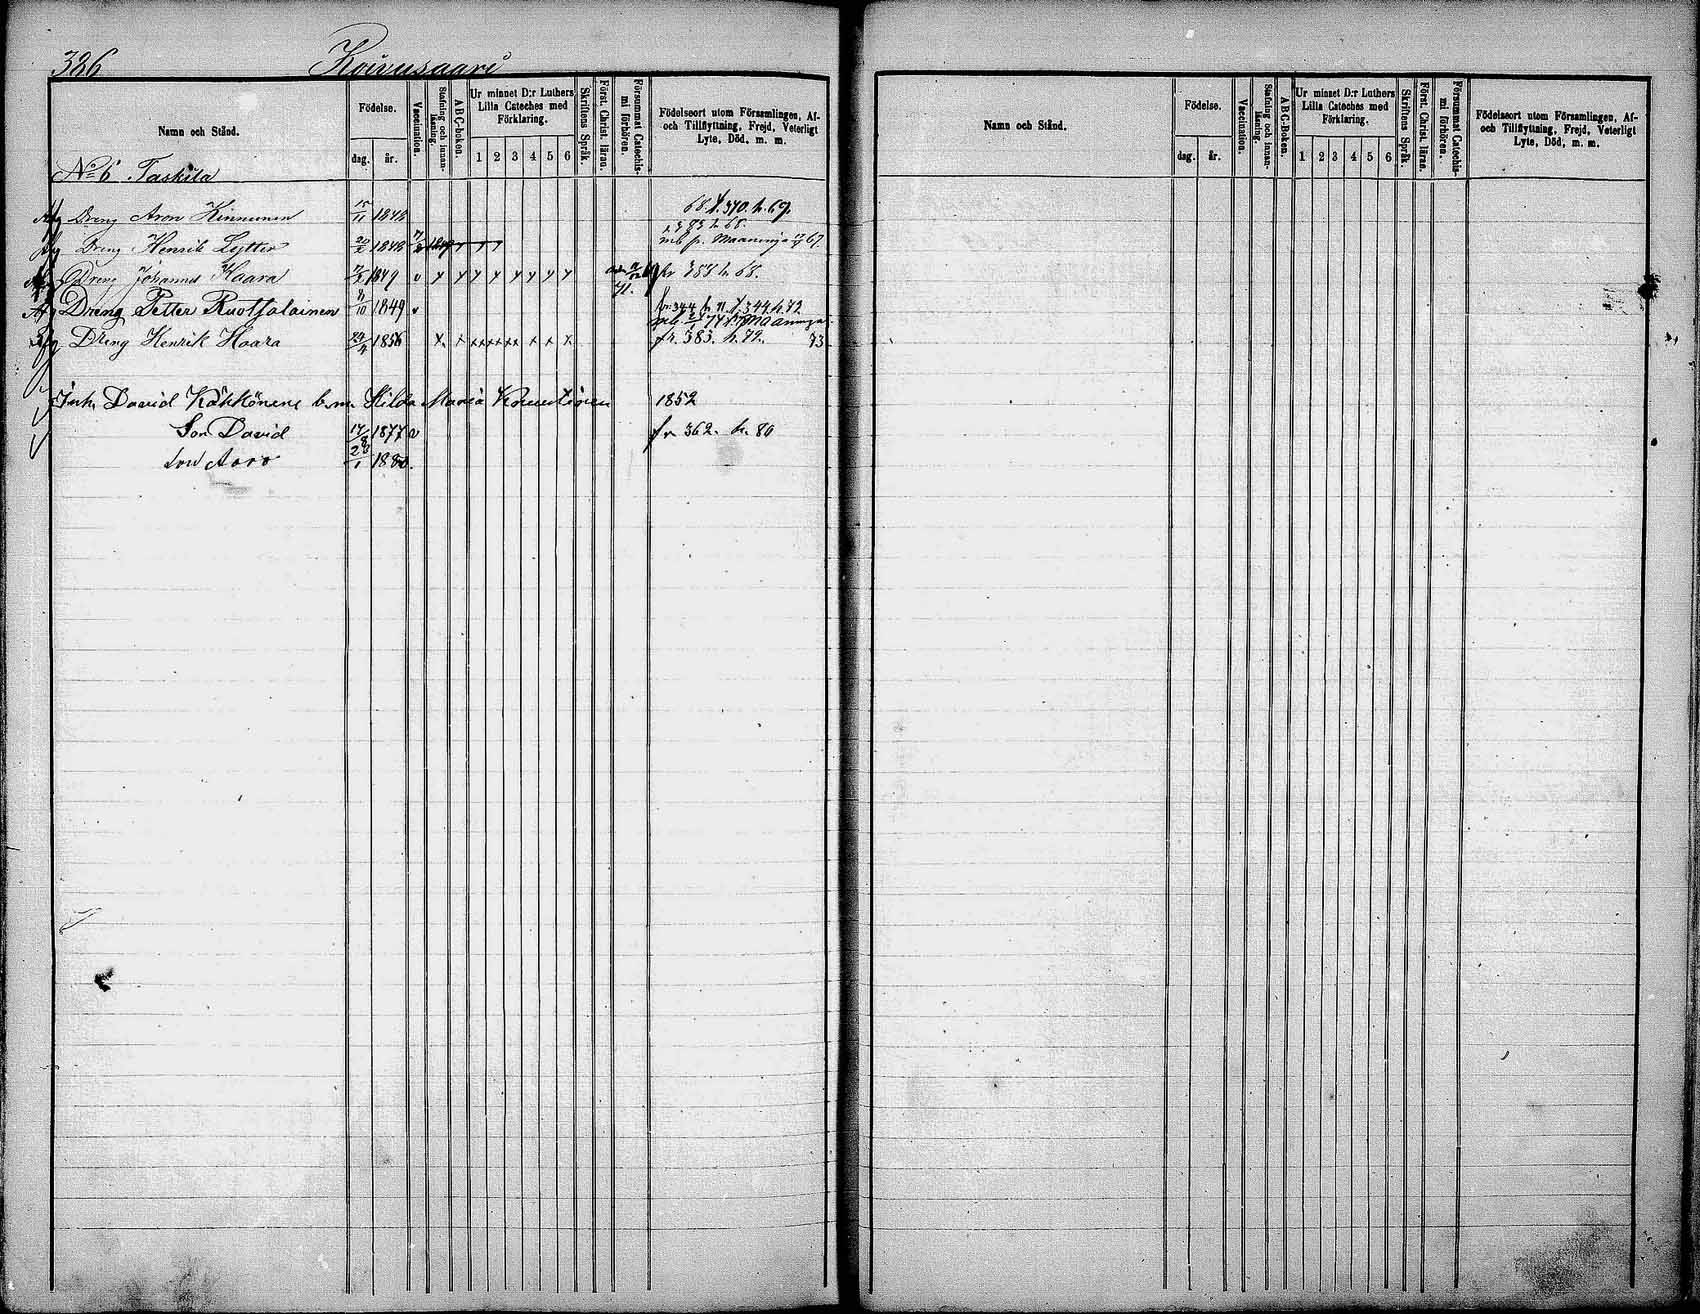 386 Koivusaari
Namn och Stånd.
Födelse.
dag. år.
Vaccination.
Stafning och innan-läsning.
A B C-boken.
Ur minnet D:r Luthers Lilla Cateches med Förklaring.
1 2 3 4 5 6
Skriftens Språk.
Först. Christ. läran.
Försummat Catechis-mi förhören.
Födelseort utom Församlingen, Af-
och Tillflyttning, Frejd, Veterligt
Lyte, Död, m. m.
No 6 Taskila
Dreng Aron Kinnunen 15/11 1848 68. f. 370. h. 69.
Dreng Henrik Lytter 1848 h. 68.
mb p. Maaninga 67.
Dreng Johannes Haara 1849 v x x x x x x x x fr 388 h 68.
71.
Dreng Petter Ruottalainen 8/10 1849 v fr 344 h. 71. f. 344. h. 72
Maaninga
Dreng Henrik Haara 24/4 1856 x x x x x x x x fr. 383. h. 72. 73
Inh. David Kähkönen b. m. Hilda Maria 1852
Son David 1877 v fr 362. h. 80
Son Aaro 1880.
Namn och Stånd.
Födelse.
dag. år.
Vaccination.
Stafning och innan-läsning.
A B C-Boken.
Ur minnet D:r Luthers Lilla Cateches med Förklaring.
1 2 3 4 5 6
Skriftens Språk.
Först. Christ. läran.
Försummat Catechis-mi förhören.
Födelseort utom Församlingen, Af-
och Tillflyttning, Frejd, Veterligt
Lyte, Död, m. m.